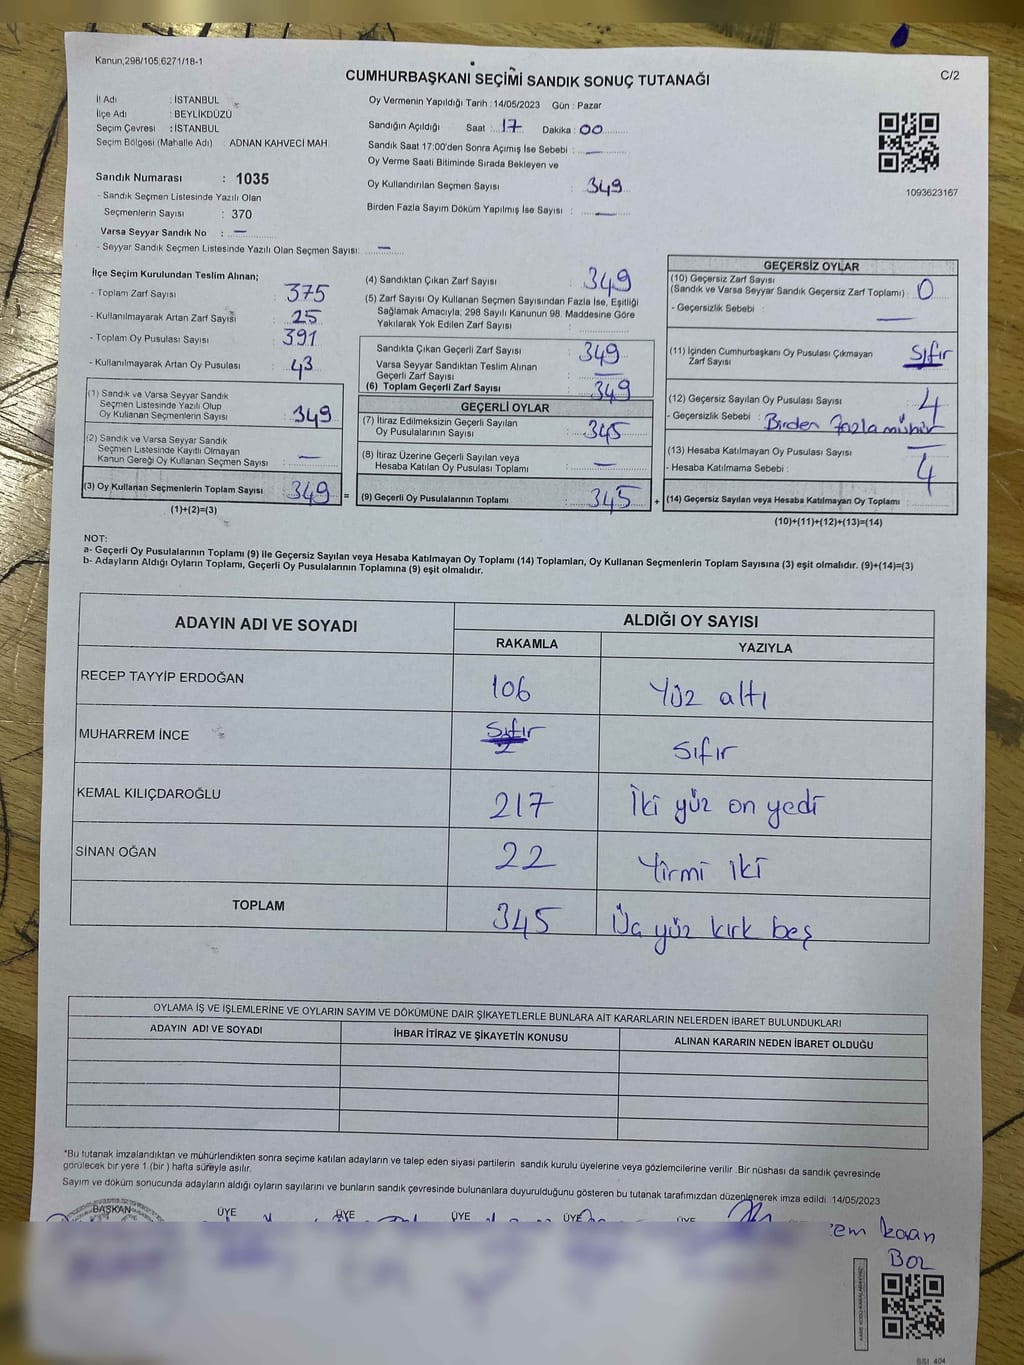 Kanun,298/105,6271/18-1
C/2
CUMHURBAŞKANI SEÇİMİ SANDIK SONUÇ TUTANAĞI
İl Adı : İSTANBUL
İlçe Adı : BEYLİKDÜZÜ
Seçim Çevresi : İSTANBUL
Seçim Bölgesi (Mahalle Adı) : ADNAN KAHVECİ MAH.
Sandık Numarası : 1035
- Sandık Seçmen Listesinde Yazılı Olan
Seçmenlerin Sayısı : 370
Varsa Seyyar Sandık No : —
- Seyyar Sandık Seçmen Listesinde Yazılı Olan Seçmen Sayısı: —
Oy Vermenin Yapıldığı Tarih : 14/05/2023 Gün : Pazar
Sandığın Açıldığı Saat : 17 Dakika : 00
Sandık Saat 17:00'den Sonra Açımış İse Sebebi : —
Oy Verme Saati Bitiminde Sırada Bekleyen ve
Oy Kullandırılan Seçmen Sayısı : 349
Birden Fazla Sayım Döküm Yapılmış İse Sayısı : —
1093623167
İlçe Seçim Kurulundan Teslim Alınan;
- Toplam Zarf Sayısı : 375
- Kullanılmayarak Artan Zarf Sayısı : 25
- Toplam Oy Pusulası Sayısı : 391
- Kullanılmayarak Artan Oy Pusulası : 43
(1) Sandık ve Varsa Seyyar Sandık
Seçmen Listesinde Yazılı Olup
Oy Kullanan Seçmenlerin Sayısı : 349
(2) Sandık ve Varsa Seyyar Sandık
Seçmen Listesinde Kayıtlı Olmayan
Kanun Gereği Oy Kullanan Seçmen Sayısı : —
(3) Oy Kullanan Seçmenlerin Toplam Sayısı : 349 =
(1)+(2)=(3)
(4) Sandıktan Çıkan Zarf Sayısı : 349
(5) Zarf Sayısı Oy Kullanan Seçmen Sayısından Fazla İse, Eşitliği
Sağlamak Amacıyla; 298 Sayılı Kanunun 98. Maddesine Göre
Yakılarak Yok Edilen Zarf Sayısı :
Sandıkta Çıkan Geçerli Zarf Sayısı : 349
Varsa Seyyar Sandıktan Teslim Alınan
Geçerli Zarf Sayısı : —
(6) Toplam Geçerli Zarf Sayısı : 349
GEÇERLİ OYLAR
(7) İtiraz Edilmeksizin Geçerli Sayılan
Oy Pusulalarının Sayısı : 345
(8) İtiraz Üzerine Geçerli Sayılan veya
Hesaba Katılan Oy Pusulası Toplamı : —
(9) Geçerli Oy Pusulalarının Toplamı : 345 +
GEÇERSİZ OYLAR
(10) Geçersiz Zarf Sayısı
(Sandık ve Varsa Seyyar Sandık Geçersiz Zarf Toplamı) : 0
- Geçersizlik Sebebi : —
(11) İçinden Cumhurbaşkanı Oy Pusulası Çıkmayan
Zarf Sayısı : Sıfır
(12) Geçersiz Sayılan Oy Pusulası Sayısı : 4
- Geçersizlik Sebebi : Birden fazla mühür
(13) Hesaba Katılmayan Oy Pusulası Sayısı : —
- Hesaba Katılmama Sebebi :
(14) Geçersiz Sayılan veya Hesaba Katılmayan Oy Toplamı : 4
(10)+(11)+(12)+(13)=(14)
NOT:
a- Geçerli Oy Pusulalarının Toplamı (9) ile Geçersiz Sayılan veya Hesaba Katılmayan Oy Toplamı (14) Toplamları, Oy Kullanan Seçmenlerin Toplam Sayısına (3) eşit olmalıdır. (9)+(14)=(3)
b- Adayların Aldığı Oyların Toplamı, Geçerli Oy Pusulalarının Toplamına (9) eşit olmalıdır.
ADAYIN ADI VE SOYADI ALDIĞI OY SAYISI
RAKAMLA YAZIYLA
RECEP TAYYİP ERDOĞAN 106 Yüz altı
MUHARREM İNCE Sıfır sıfır
KEMAL KILIÇDAROĞLU 217 İki yüz on yedi
SİNAN OĞAN 22 Yirmi iki
TOPLAM 345 Üç yüz kırk beş
OYLAMA İŞ VE İŞLEMLERİNE VE OYLARIN SAYIM VE DÖKÜMÜNE DAİR ŞİKAYETLERLE BUNLARA AİT KARARLARIN NELERDEN İBARET BULUNDUKLARI
ADAYIN ADI VE SOYADI İHBAR İTİRAZ VE ŞİKAYETİN KONUSU ALINAN KARARIN NEDEN İBARET OLDUĞU
*Bu tutanak imzalandıktan ve mühürlendikten sonra seçime katılan adayların ve talep eden siyasi partilerin sandık kurulu üyelerine veya gözlemcilerine verilir .Bir nüshası da sandık çevresinde
görülecek bir yere 1 (bir ) hafta süreyle asılır.
Sayım ve döküm sonucunda adayların aldığı oyların sayılarını ve bunların sandık çevresinde bulunanlara duyurulduğunu gösteren bu tutanak tarafımızdan düzenlenerek imza edildi. 14/05/2023
BAŞKAN ÜYE ÜYE ÜYE ÜYE ÜYE
em kaan
BOZ